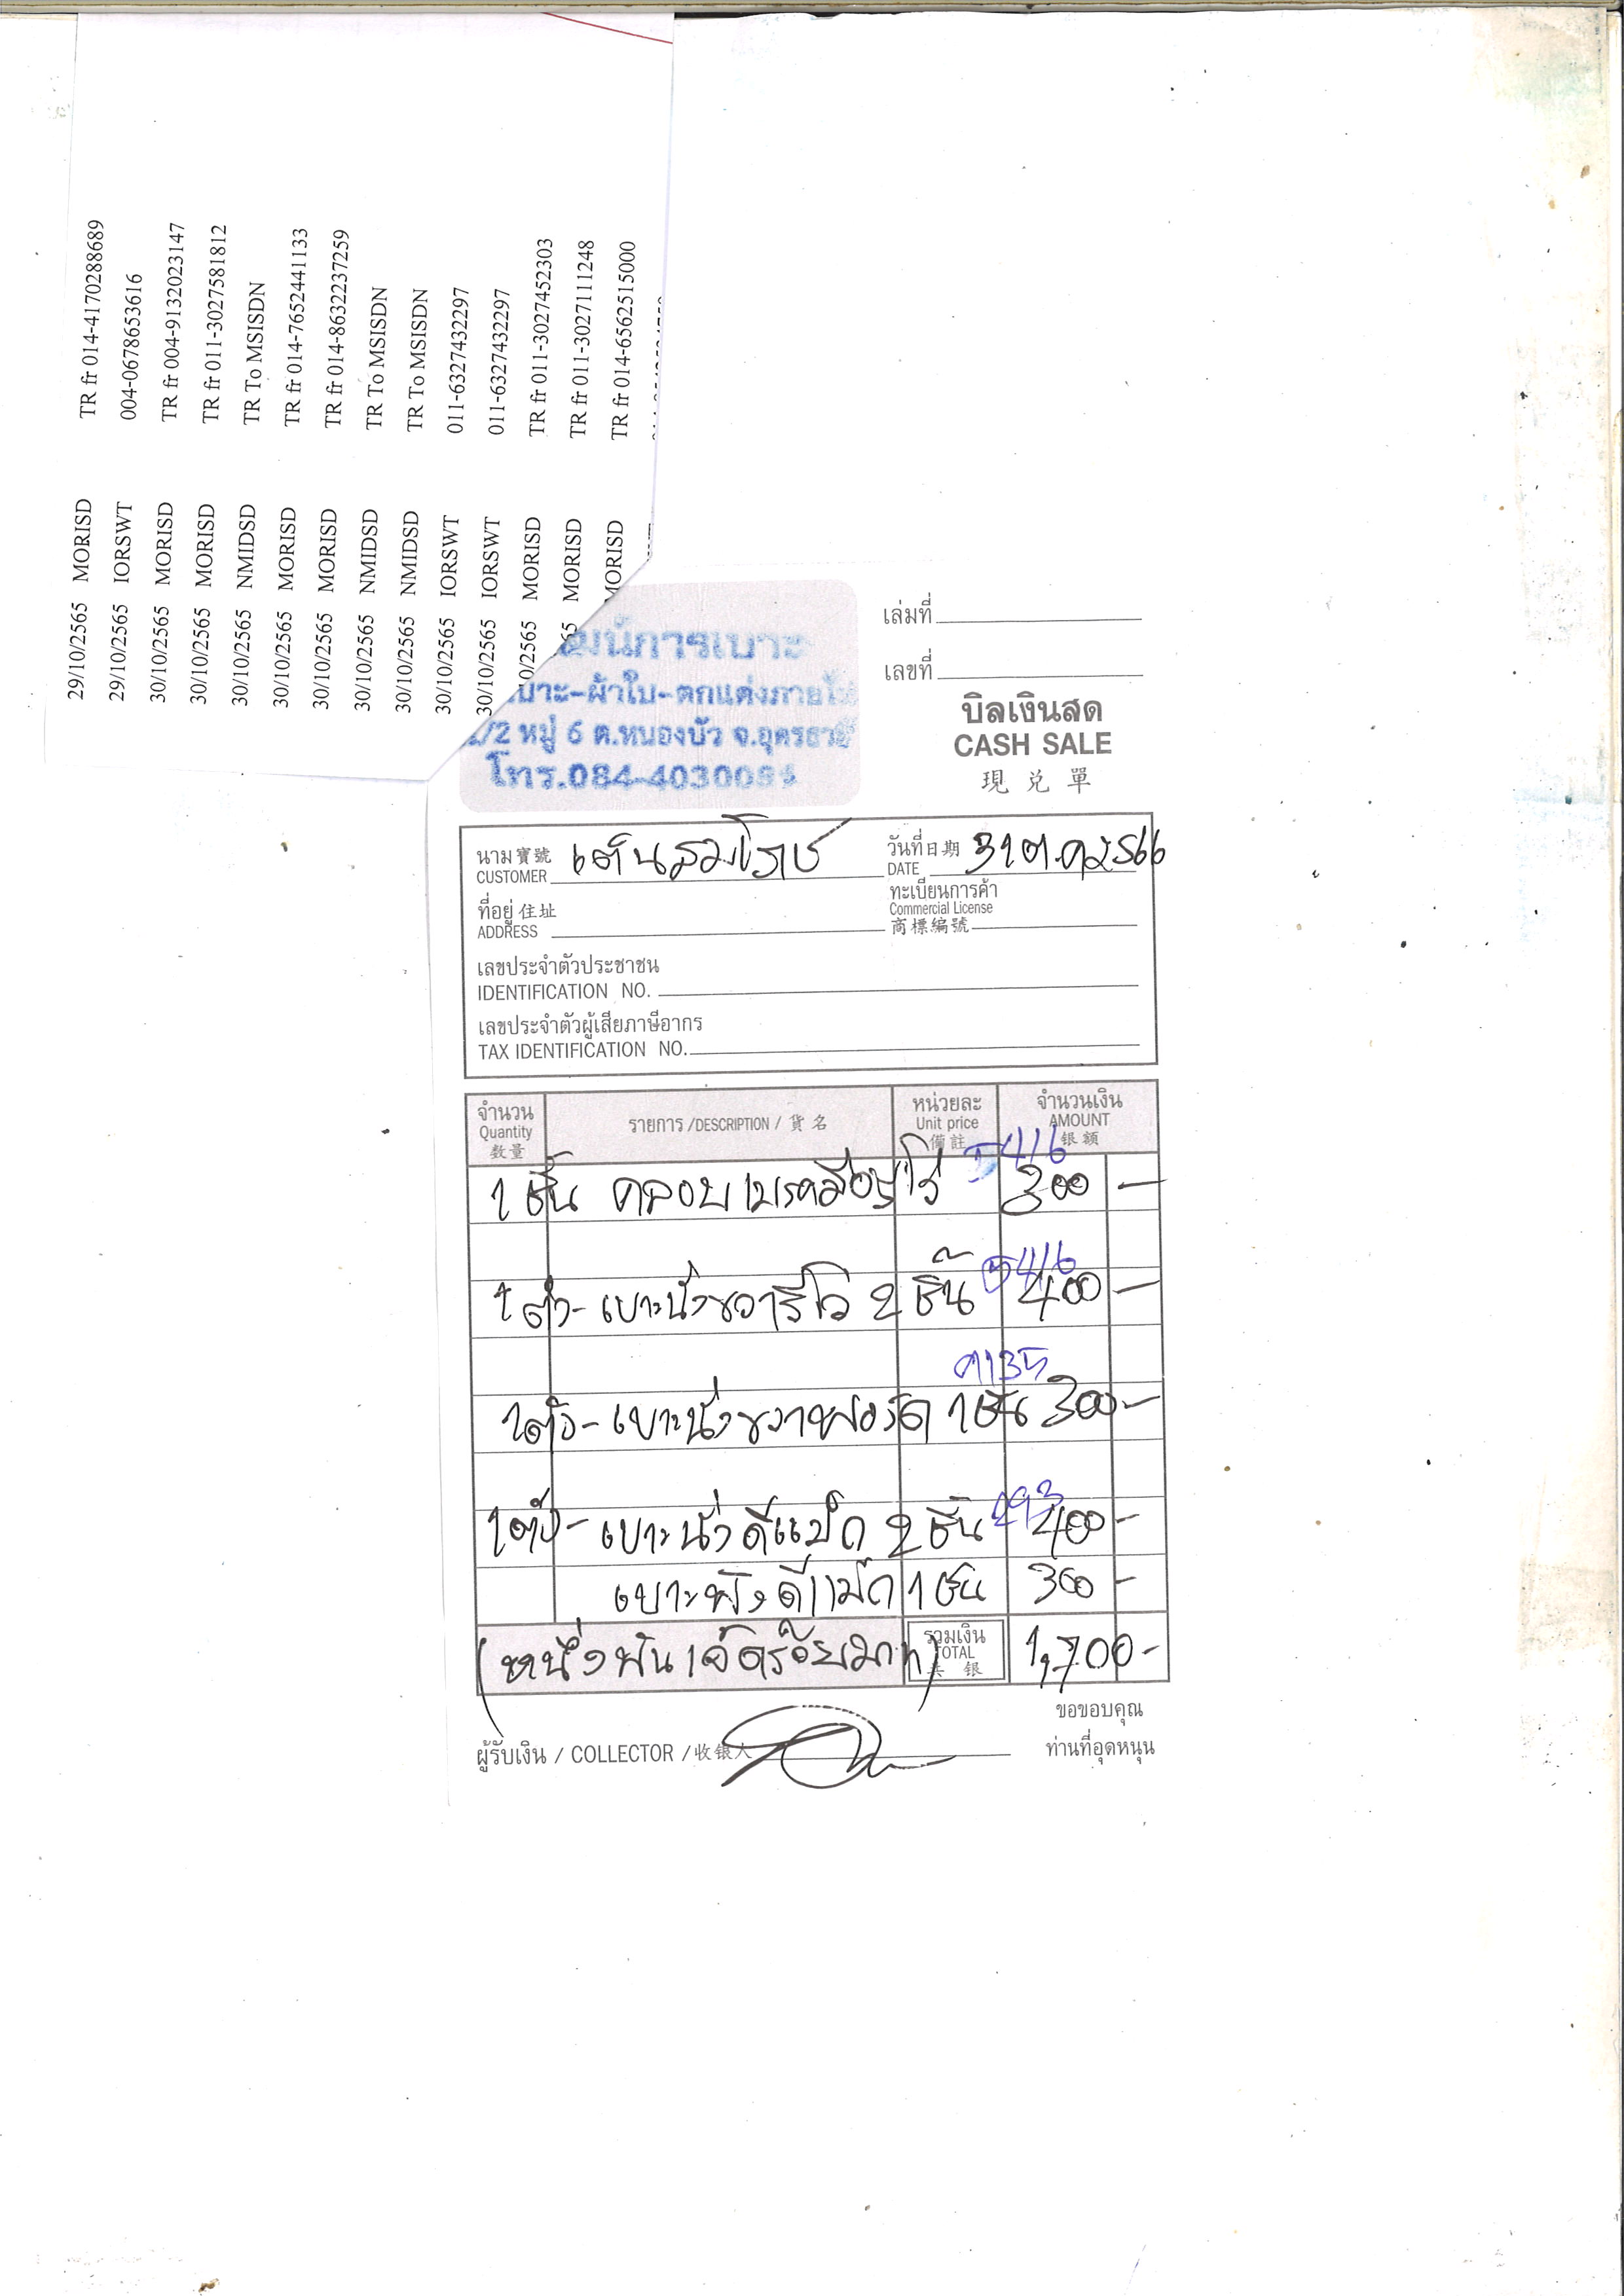 29/10/2565 MORISD TR fr 014-4170288689
29/10/2565 IORSWT 004-0678653616
30/10/2565 MORISD TR fr 004-9132023147
30/10/2565 MORISD TR fr 011-3027581812
30/10/2565 NMIDSD TR To MSISDN
30/10/2565 MORISD TR fr 014-7652441133
30/10/2565 MORISD TR fr 014-8632237259
30/10/2565 NMIDSD TR To MSISDN
30/10/2565 NMIDSD TR To MSISDN
30/10/2565 IORSWT 011-6327432297
30/10/2565 IORSWT 011-6327432297
0/2565 MORISD TR fr 011-3027452303
65 MORISD TR fr 011-3027111248
MORISD TR fr 014-6562515000
การเบาะ
เบาะ-ผ้าใบ-ตกแต่งภายใน
/2 หมู่ 6 ต.หนองบัว จ.อุดรธานี
โทร.084-4030084
เล่มที่
เลขที่
บิลเงินสด
CASH SALE
現兑單
นาม寶號 CUSTOMER เต็นสมโภช
วันที่日期 DATE 31 ต.ค 2566
ที่อยู่住址 ADDRESS
ทะเบียนการค้า Commercial License 商標編號
เลขประจำตัวประชาชน
IDENTIFICATION NO.
เลขประจำตัวผู้เสียภาษีอากร
TAX IDENTIFICATION NO.
จำนวน Quantity 数量 รายการ /DESCRIPTION / 貨名 หน่วยละ Unit price 備註 จำนวนเงิน AMOUNT 银额
416
1 ชิ้น 300 -
416
1 ตัว - เบาะนั่ง 2 ชิ้น 400 -
ต135
1ตัว - เบาะนั่ง 1ชิ้น 300 -
493
1ตัว - เบาะนั่งดีแม็ก 2 ชิ้น 400 -
เบาะพิงดีแม็ก 1 ชิ้น 300 -
(หนึ่งพันเจ็ดร้อยบาท) รวมเงิน TOTAL 共银 1,700 -
ผู้รับเงิน / COLLECTOR /收银人
ขอขอบคุณ
ท่านที่อุดหนุน